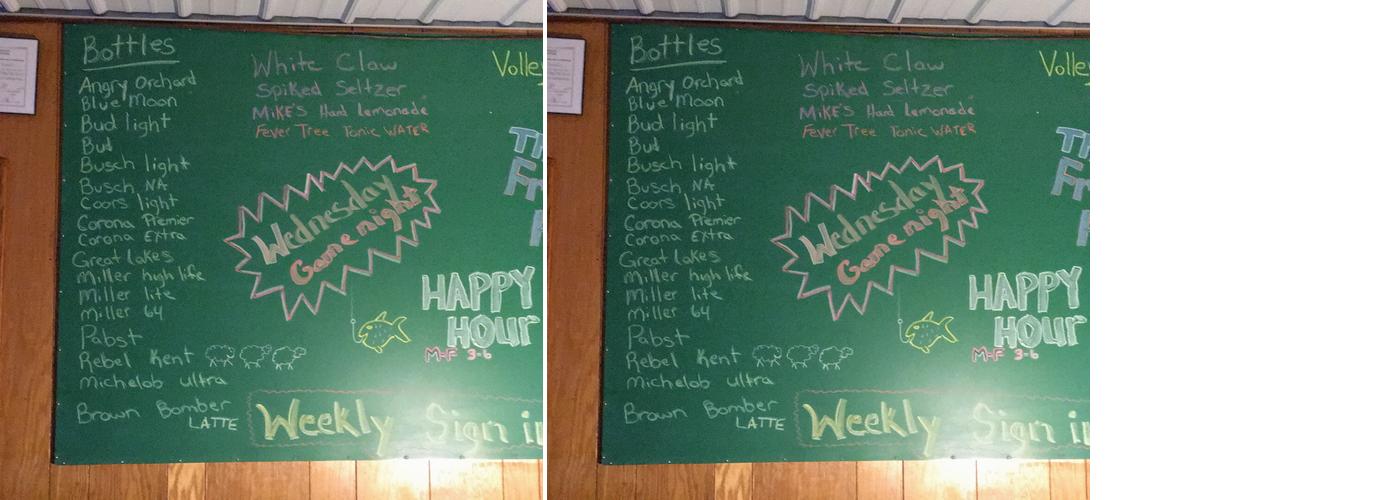 Bottles
Angry Orchard
Blue Moon
Bud light
Bud
Busch light
Busch NA
Coors light
Corona Premier
Corona Extra
Great Lakes
Miller high life
Miller lite
Miller 64
Pabst
Rebel Kent
Michelob ultra
Brown Bomber
LATTE
White Claw
Spiked Seltzer
MiKE'S Hard Lemonade
Fever Tree Tonic WATER
Wednesday
Game night
Volle
HAPPY
HOUR
M-F 3-6
Weekly Sign in
Bottles
Angry Orchard
Blue Moon
Bud light
Bud
Busch light
Busch NA
Coors light
Corona Premier
Corona Extra
Great Lakes
Miller high life
Miller lite
Miller 64
Pabst
Rebel Kent
Michelob ultra
Brown Bomber
LATTE
White Claw
Spiked Seltzer
MiKE'S Hard Lemonade
Fever Tree Tonic WATER
Wednesday
Game night
Volle
HAPPY
HOUR
M-F 3-6
Weekly Sign in